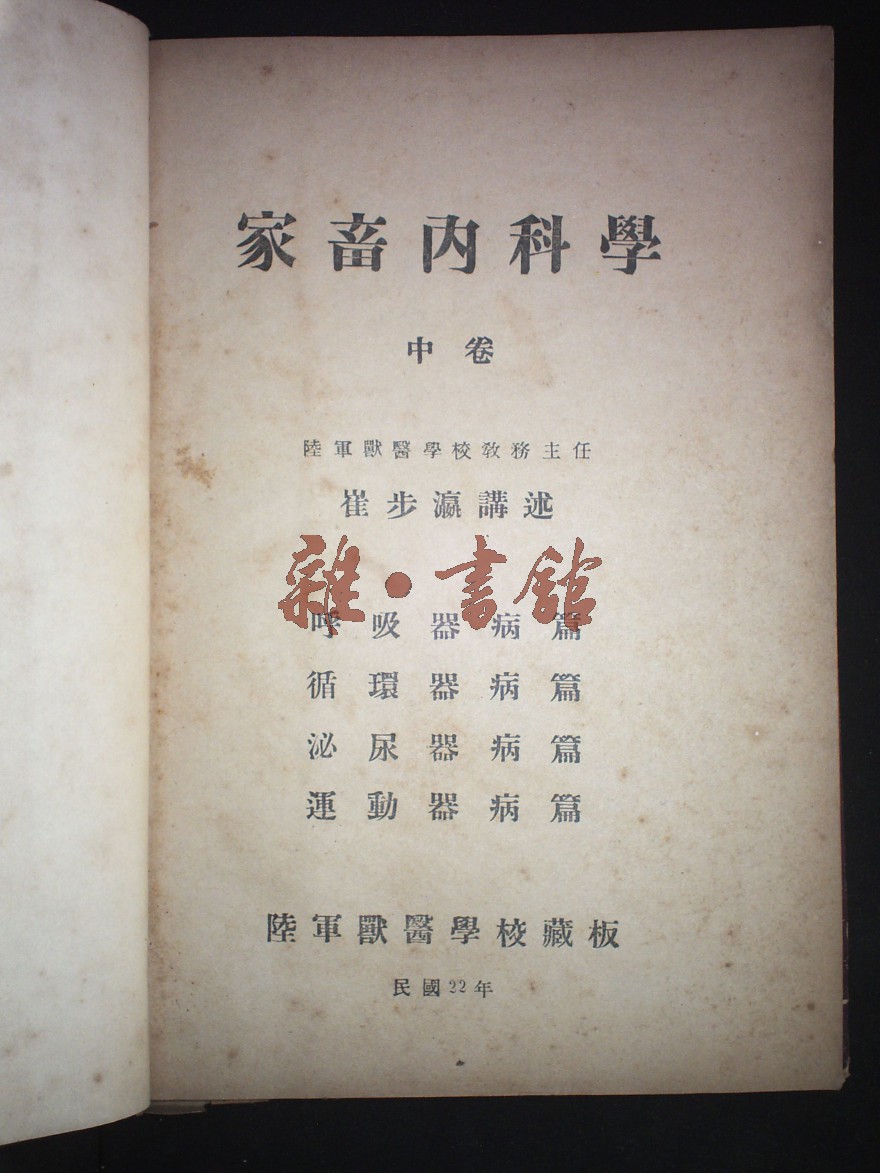 家畜内科學
中卷
陸軍獸醫學校敎務主任
崔步瀛講述
雜·書館
呼吸器病篇
循環器病篇
泌尿器病篇
運動器病篇
陸軍獸醫學校藏板
民國22年